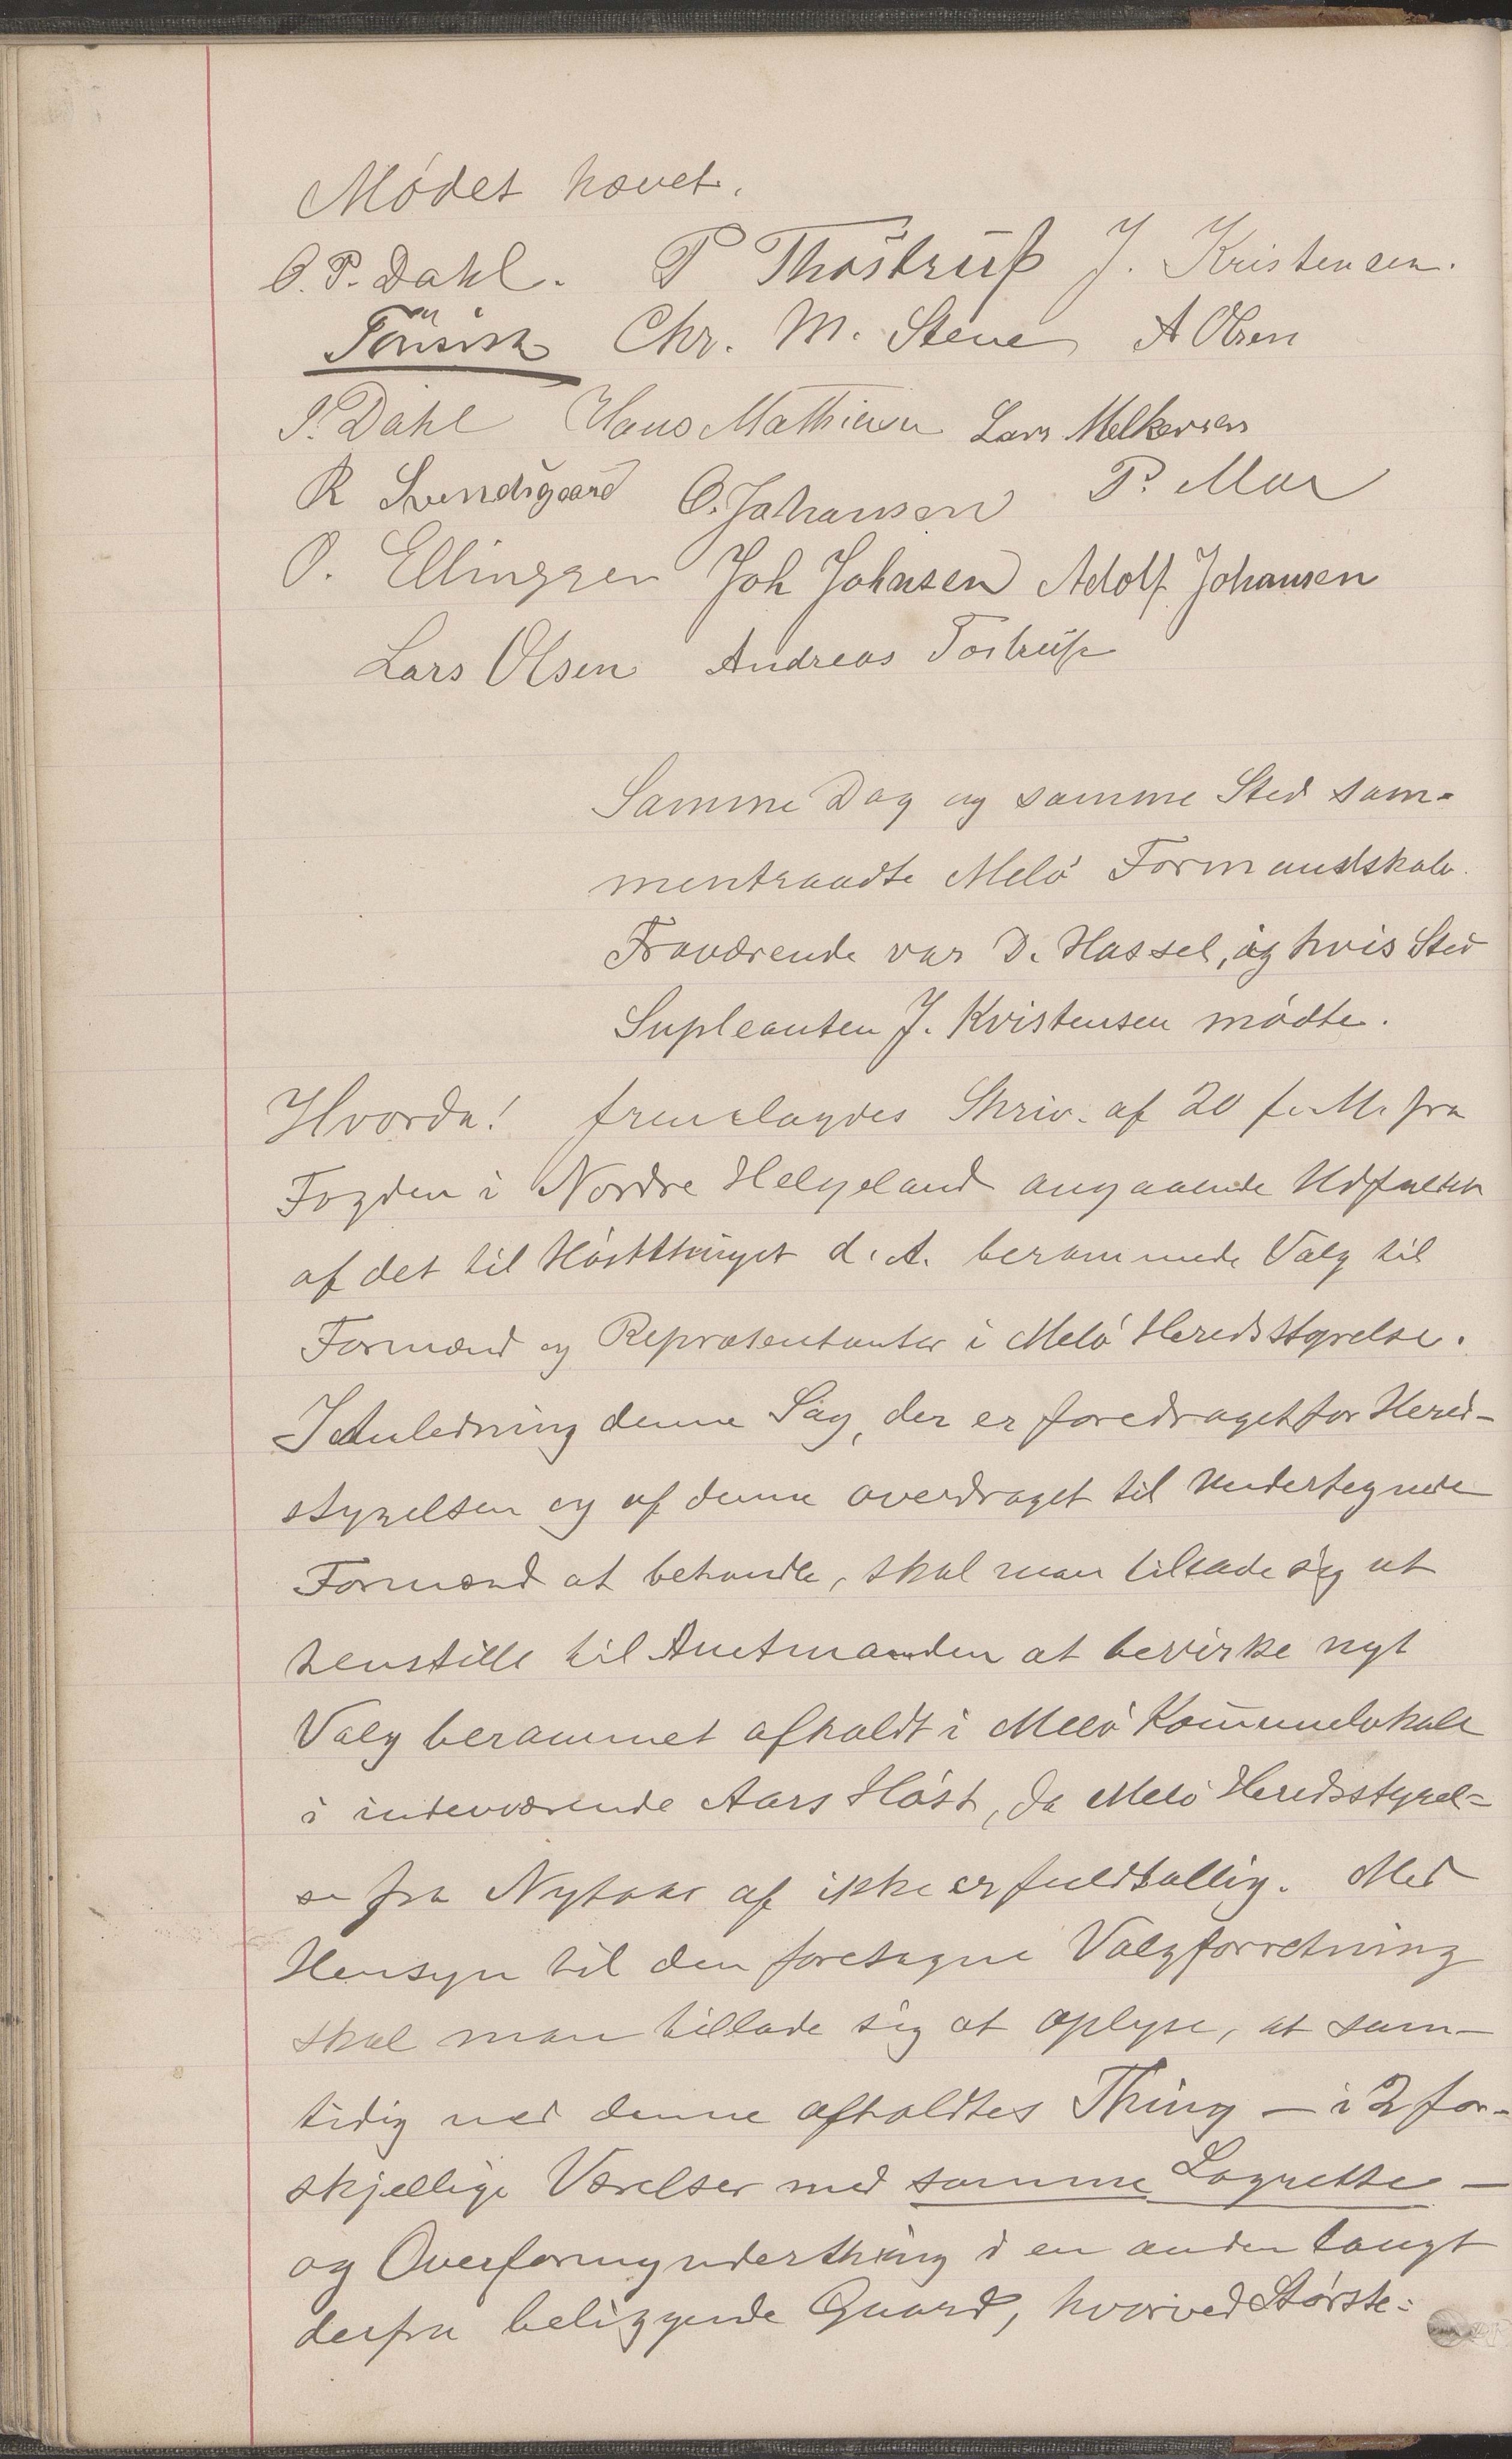 Mödet hævet.
O. P. Dahl. P Thostrup J. Kristensen.
Chr. M. Stene A Olsen
P. Dahl Hans Mathisen Lars Melkersen
R Svendsgaard O. Johansen P. Moe
O. Ellingsen Joh Johnsen Adolf Johansen
Lars Olsen Andreas Tostrup
Samme Dag og samme Sted sam-
mentraadte Melö Formandskab.
Fraværende var D. Hassel, og hvis Sted
Supleanten J. Kristensen mödte.
Hvorda! fremlagdes Skriv. af 20 f. M. fra
Fogden i Nordre Helgeland angaaende Udfaldet
af det til Höstthinget d. A. berammede Valg til
Formænd og Repræsentanter i Melö Heredsstyrelse.
I Anledning denne Sag, der er foredraget for Hered-
styrelsen og af denne overdraget til Undertegnede
Formænd at behandle, skal man tillade sig at
henstille til Amtmanden at bevirke nyt
Valg berammet afholdt i Melö Kommunelokale
i indeværende Aars Höst, da Melö Heredsstyrel-
se fra Nytaar af ikke er fuldtallig. Med
Hensyn til den foretagne Valgforretning
skal man tillade sig at oplyse, at sam-
tidig med denne afholdtes Thing – i 2 for-
skjellige Værelser med samme Lagrette –
og Overformynderthing i en anden langt
derfra beliggende Gaard, hvorved Störste-